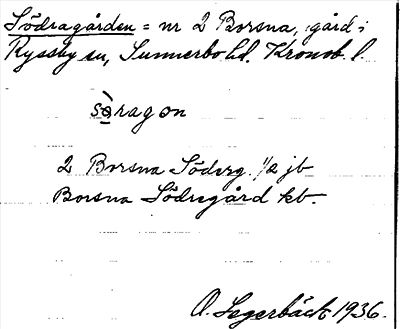 Södragården = nr 2 Borsna, gård i
Ryssby sn, Sunnerbo hd. Kronob. l.
sə̀ragən
2 Borsna Söderg. 1/2 jb
Borsna Södregård kb.
O. Segerbäck 1936.